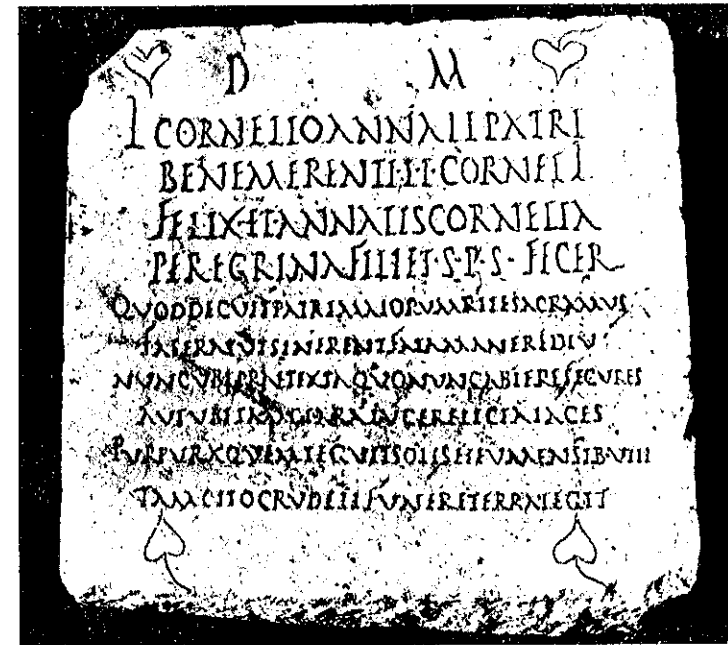 D M
L CORNELIO ANNALI PATRI
BENEMERENTI·L·L·CORNELI
FELIX·ET ANNALIS CORNELIA
PEREGRINA FILI ET·S·P·S·FECER
QVOD DECVIT PATRI MAIORVM RITE SACRAMVS
ERAT VT SINERENT FATA MANERE DIV
NVNC VBI PRETEXTA QVO NVNC ABIERE SECVRES
AVT VBI LVCE RELICTA IACES
PVRPVRA QVEM TEGVIT SOLIS MENSIB
TAM CITO CRVDELI FVNERE TERRA TEGIT